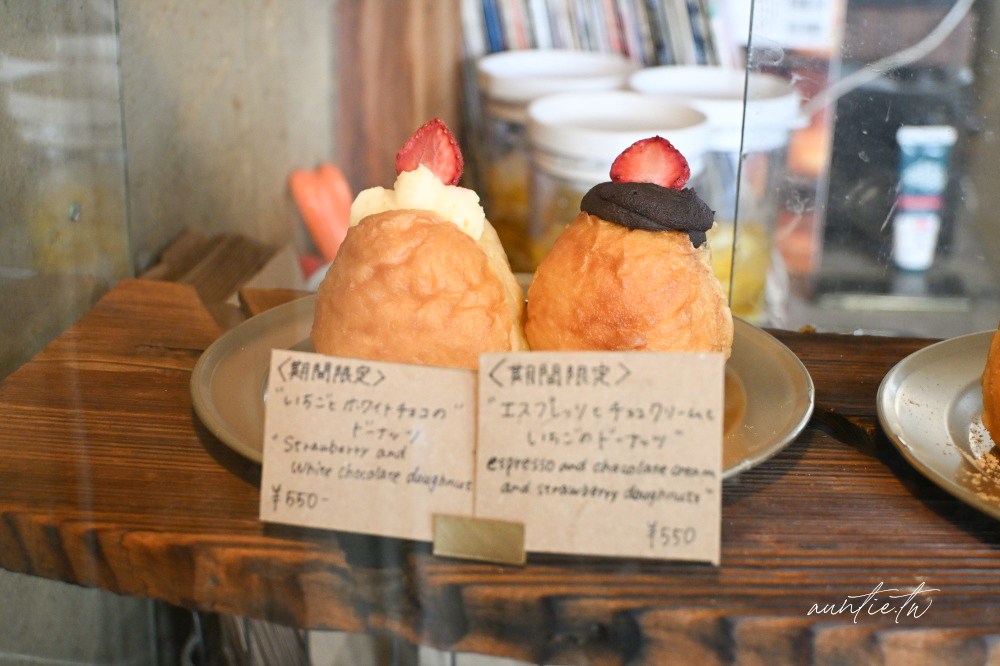 〈期間限定〉
"いちごとホワイトチョコの"
ドーナッツ
"Strawberry and
White chocolate doughnut
¥550-
〈期間限定〉
"エスプレッソとチョコクリームと
いちごのドーナッツ"
espresso and chocolate cream
and strawberry doughnuts"
¥550
auntie.tw